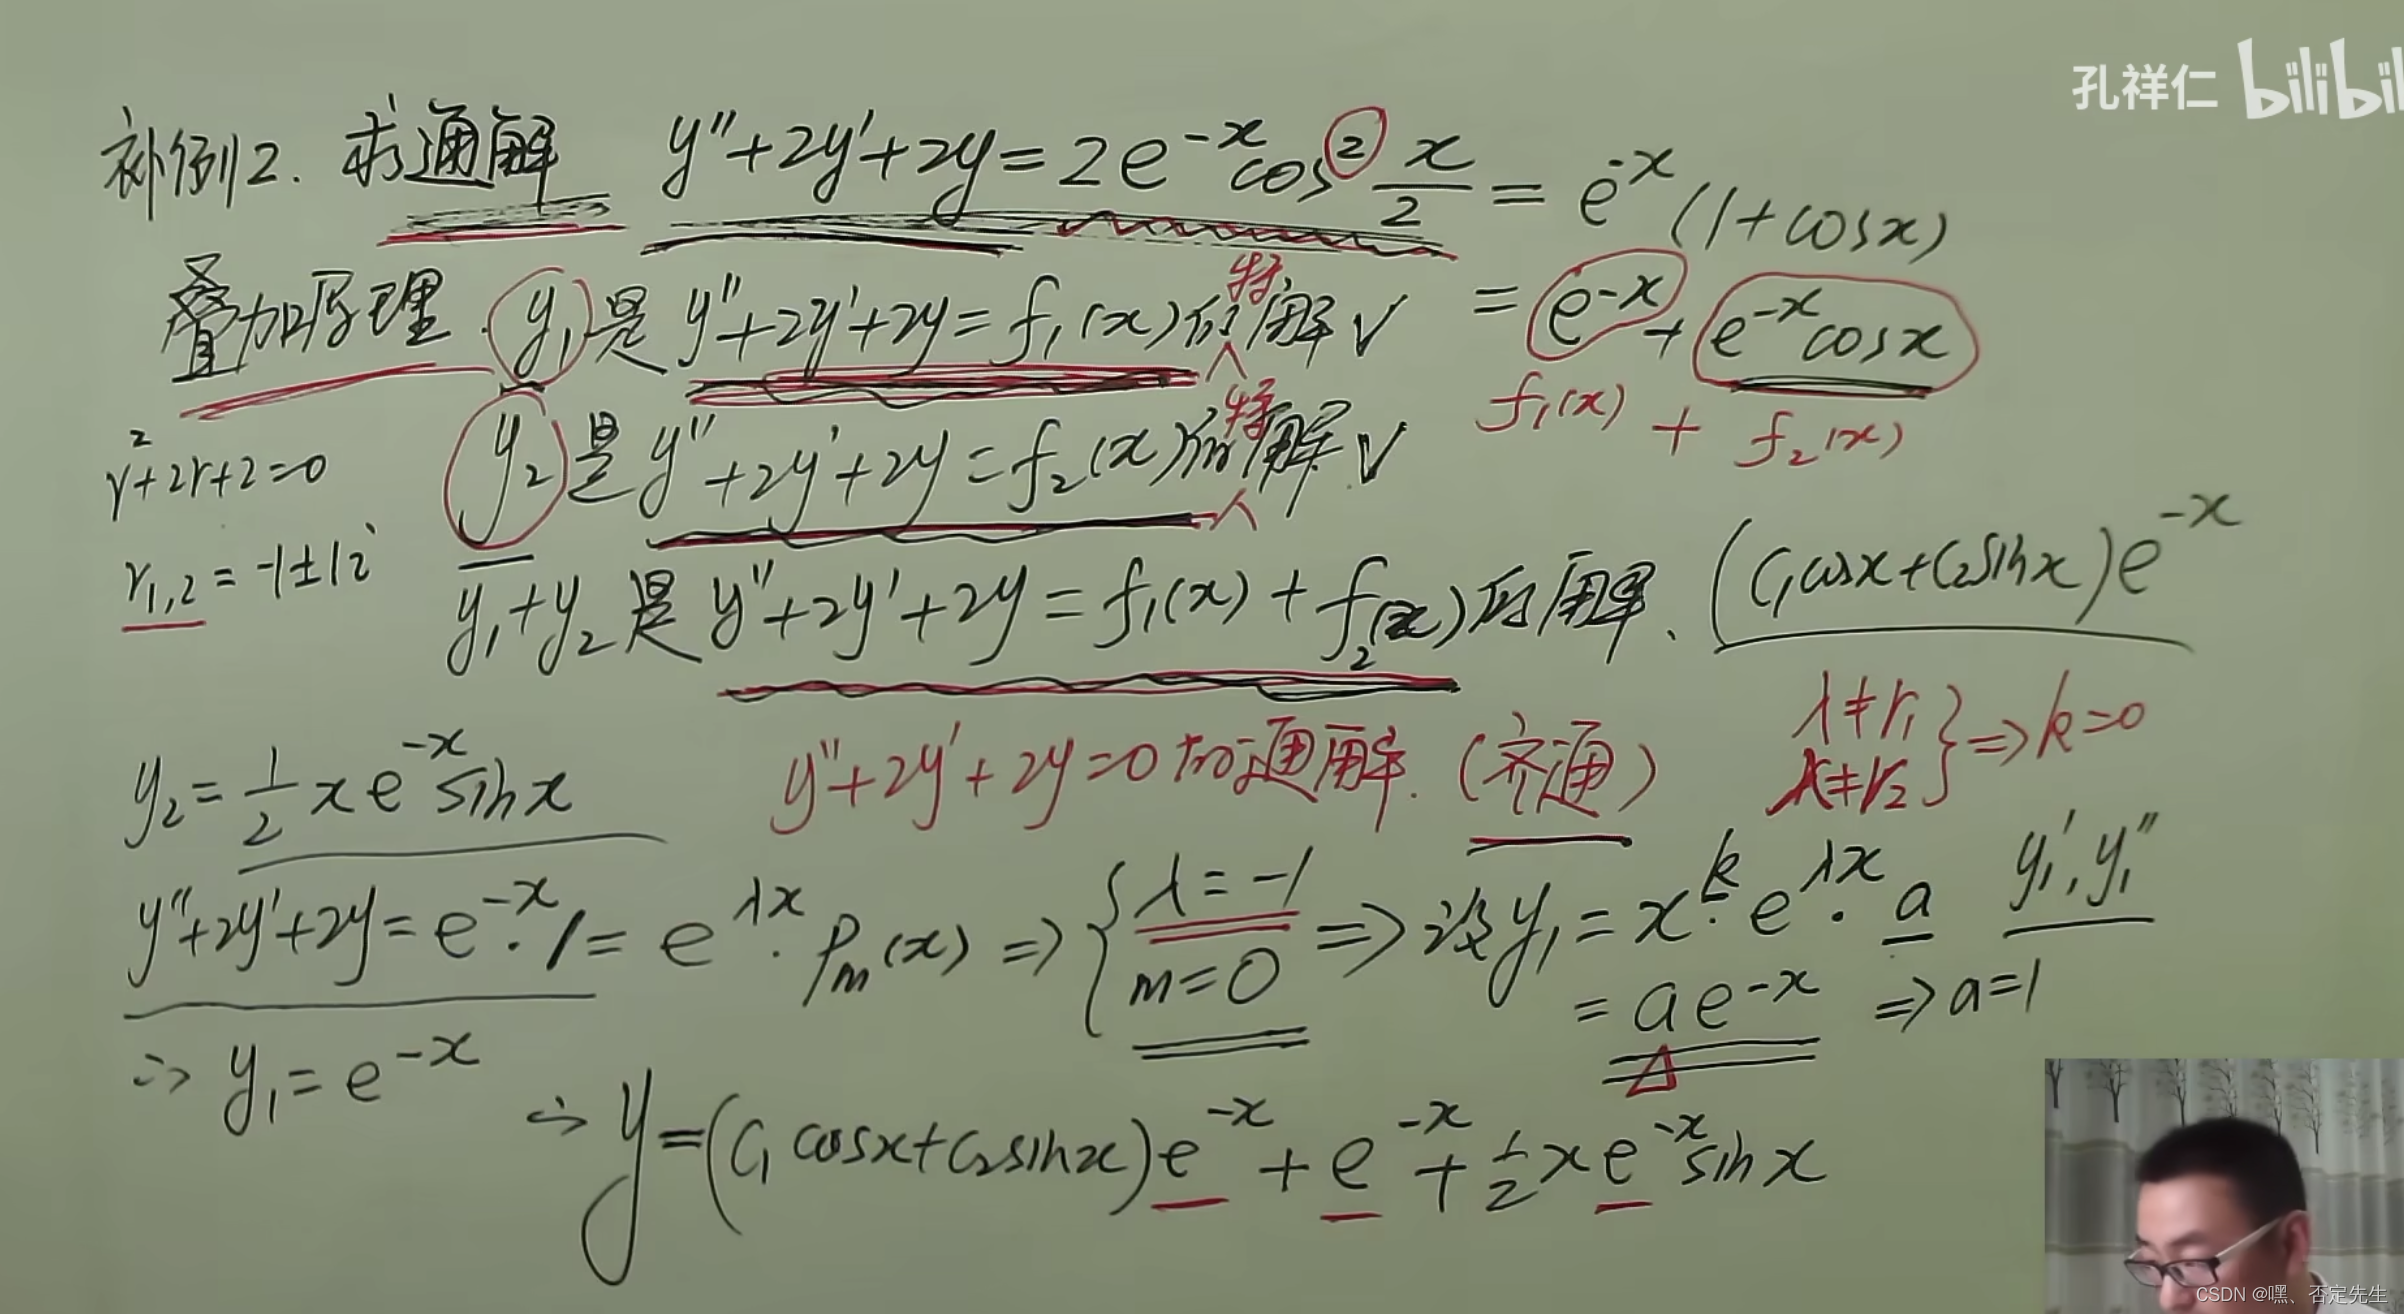 孔祥仁 bilibili
补例2. 求通解 y''+2y'+2y=2e^{-x}cos²\frac{x}{2}=e^{-x}(1+cosx)
叠加原理. y₁是y''+2y'+2y=f₁(x)的特解√ =e^{-x}+e^{-x}cosx
f₁(x)+f₂(x)
y₂是y''+2y'+2y=f₂(x)的特解√
r²+2r+2=0
r₁,₂=-1±1i
y₁+y₂是y''+2y'+2y=f₁(x)+f₂(x)的解. (C₁cosx+C₂sinx)e^{-x}
y''+2y'+2y=0的通解.(齐通)
λ≠r₁
λ≠r₂ } ⇒k=0
y₂=\frac{1}{2}xe^{-x}sinx
y''+2y'+2y=e^{-x}·1=e^{λx}·P_m(x)⇒{λ=-1
m=0 ⇒设y₁=x^k·e^{λx}·a y₁',y₁''
=ae^{-x} ⇒a=1
∴y₁=e^{-x}
∴y=(C₁cosx+C₂sinx)e^{-x}+e^{-x}+\frac{1}{2}xe^{-x}sinx
CSDN @嘿、否定先生